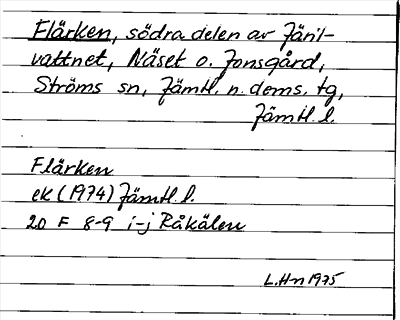 Flärken, södra delen av Järil-
vattnet, Näset o. Jonsgård,
Ströms sn, Jämtl. n. doms. tg,
Jämtl. l.
Flärken
ek (1974) Jämtl. l.
20 F 8-9 i-j Råkälen
L.Hn 1975